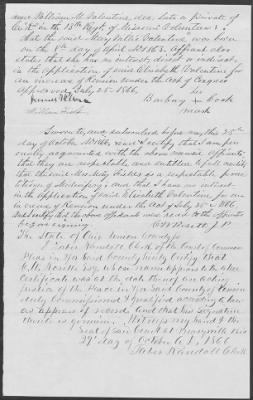 and William M. Valentine, dec. late a private of
Co. K in the 15th Regt. of Missouri Volunteers,
that the said Mary Valentine, was born
on the 8th day of April 1863. Affiant also
states that she has no interest, direct or indirect,
in the application of said Elizabeth Valentine for
an increase of Pension under the act of Congress
approved July 25th 1866. her
Barbary X Cook
mark
William
Sworn to, and subscribed before me this 25th
day of October 1866, and I certify that I am per-
sonally acquainted with the above named Affiants
that they are respectable, and entitled to full credit
that the said Mrs. is a respectable prac-
titioner of midwifery, and that I have no interest
in the application of Elizabeth Valentine for an
increase of Pension under the Act of July 25th 1866
and certify that the above affidavit was read to the affiants
before signing. J.P.
The State of Ohio Union County Ss
I Jabez Randall Clerk of the Court of Common
Pleas in & for said County hereby Certify that
Esq. whose name appears to above
Certificate was at the date thereof an acting
Justice of the Peace in & for said County of Union
duly Commissioned & qualified according to law
as appears of record and that his signature
thereto is genuine. Witness my hand & the
Seal of said Court at Marysville this
27th day of October A.D. 1866
Jabez Randall Clerk